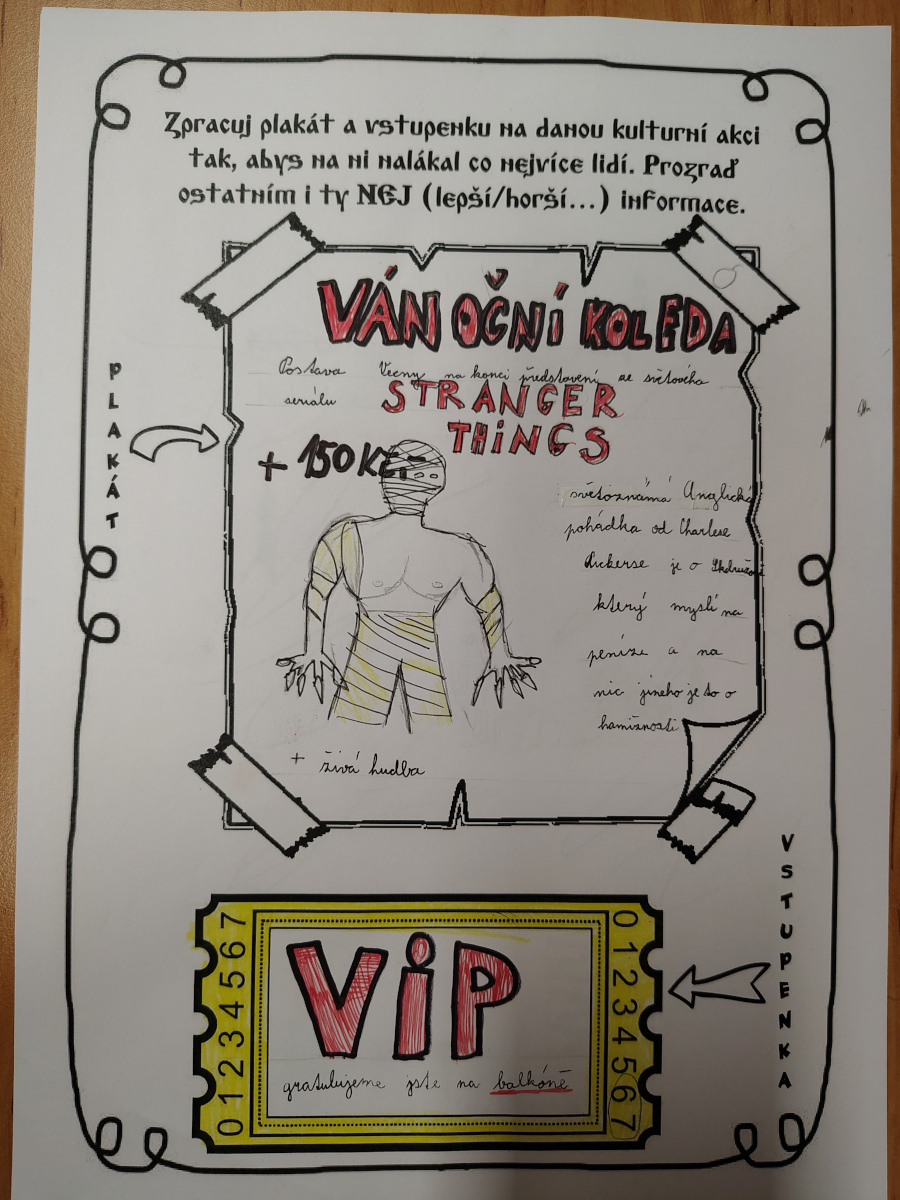 Zpracuj plakát a vstupenku na danou kulturní akci
tak, abys na ni nalákal co nejvíce lidí. Prozraď
ostatním i ty NEJ (lepší/horší...) informace.
VÁNOČNÍ KOLEDA
Postava Vecny na konci představení ze světového
seriálu
STRANGER
THINGS
+ 150 Kč
PLAKÁT
světoznámá Anglická
pohádka od Charlese
Dickense je o
který myslí na
peníze a na
nic jineho je to o
hamižnosti
+ živá hudba
VSTUPENKA
01234567
VIP
gratulujeme jste na balkóně
01234567